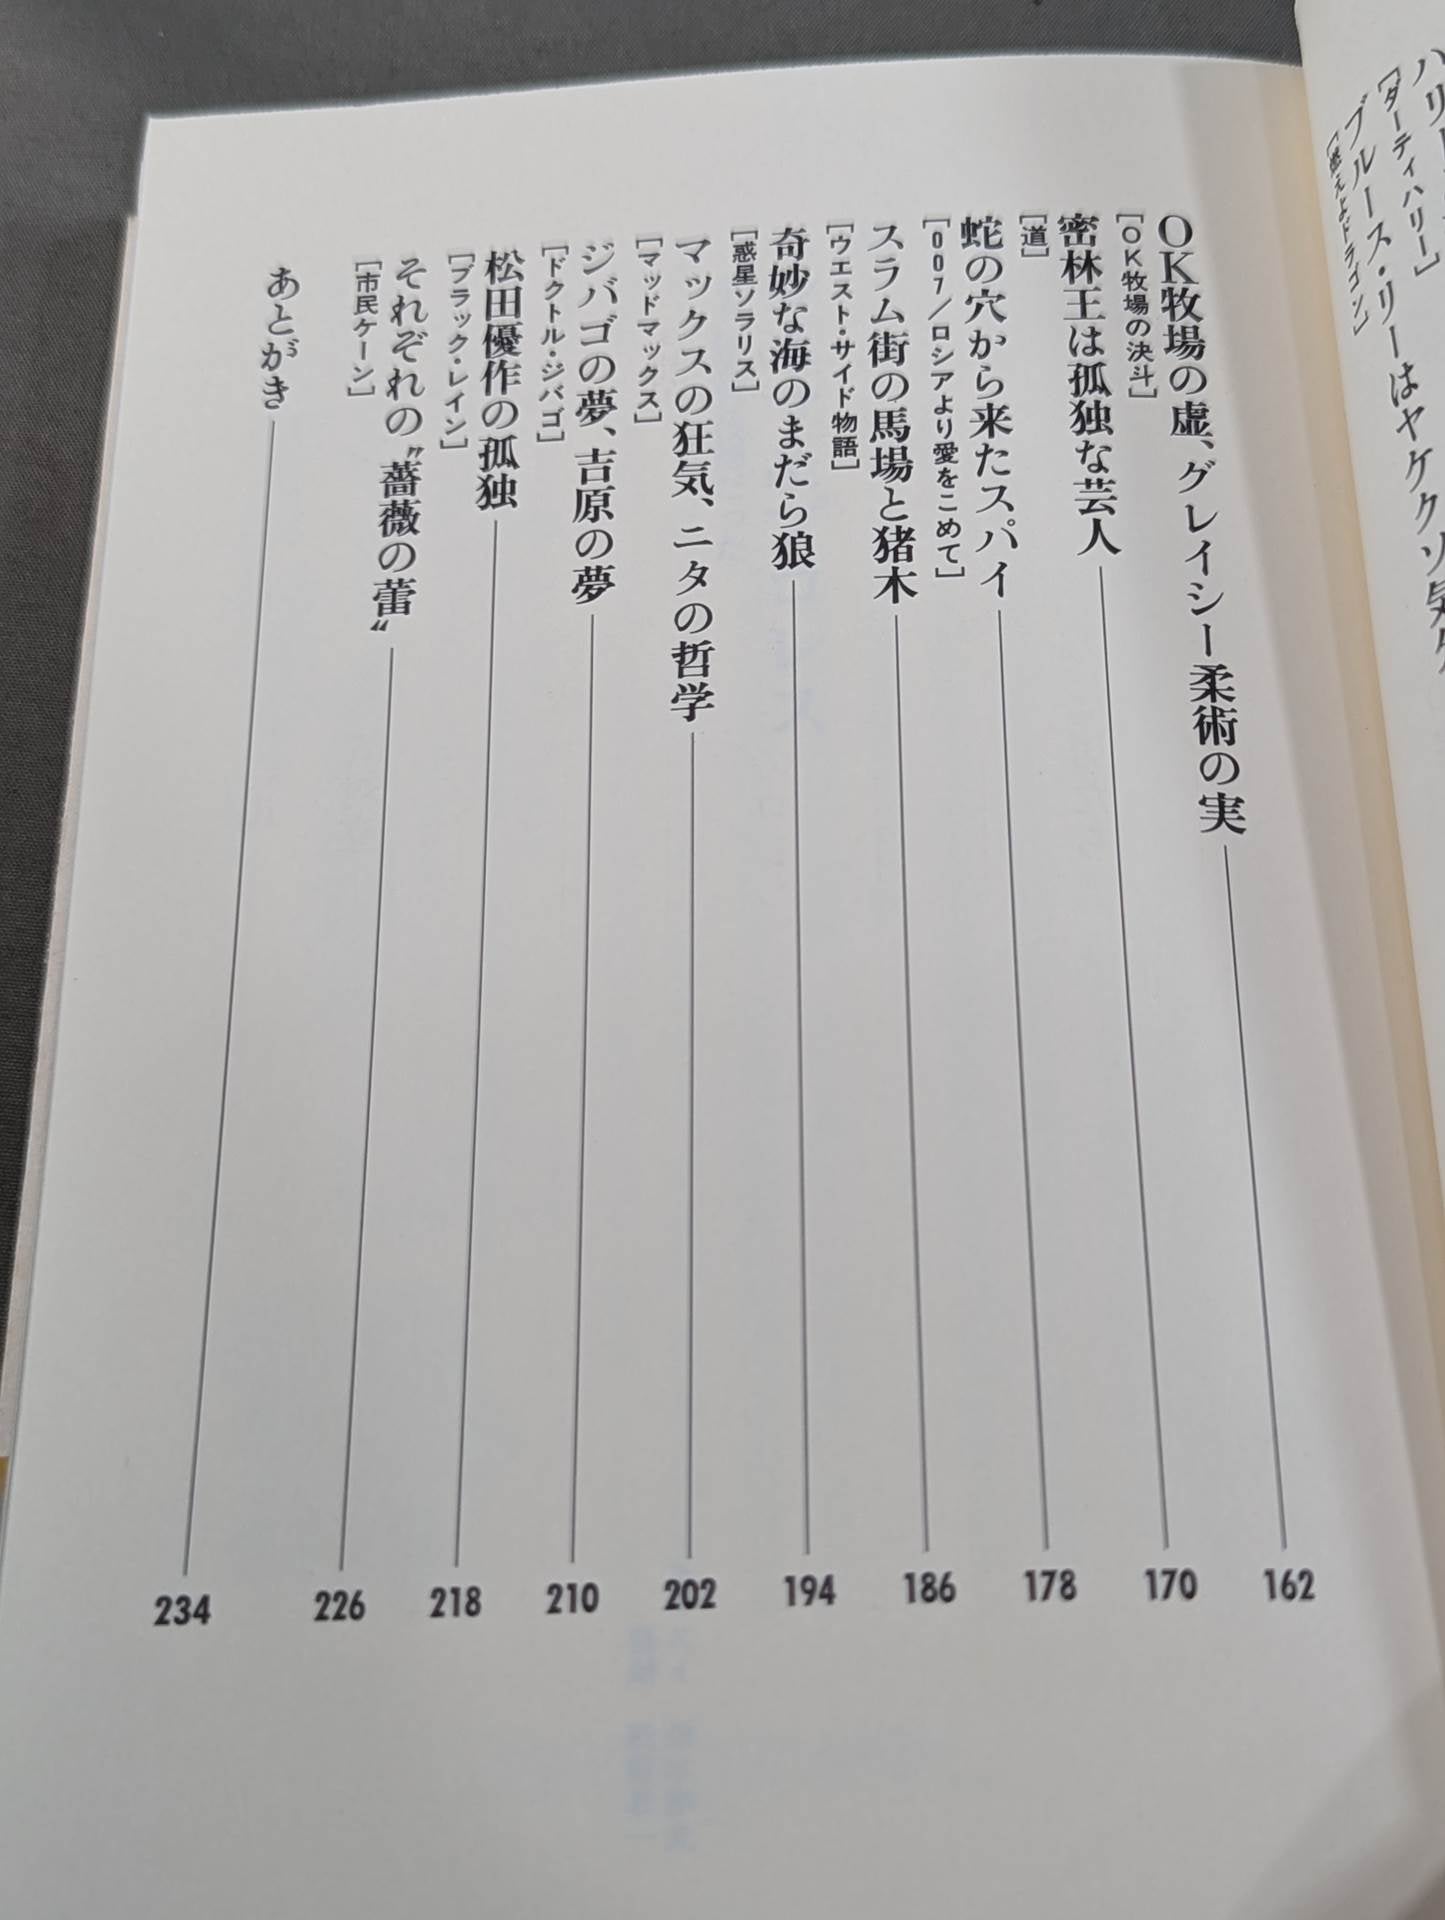 [ダーティハリー]
ブルース・リーはヤケクソ気
[燃えよドラゴン]
OK牧場の虚、グレイシー柔術の実 162
[OK牧場の決斗]
密林王は孤独な芸人 170
[道]
蛇の穴から来たスパイ 178
[007/ロシアより愛をこめて]
スラム街の馬場と猪木 186
[ウエスト・サイド物語]
奇妙な海のまだら狼 194
[惑星ソラリス]
マックスの狂気、ニタの哲学 202
[マッドマックス]
ジバゴの夢、吉原の夢 210
[ドクトル・ジバゴ]
松田優作の孤独 218
[ブラック・レイン]
それぞれの〝薔薇の蕾〟 226
[市民ケーン]
あとがき 234